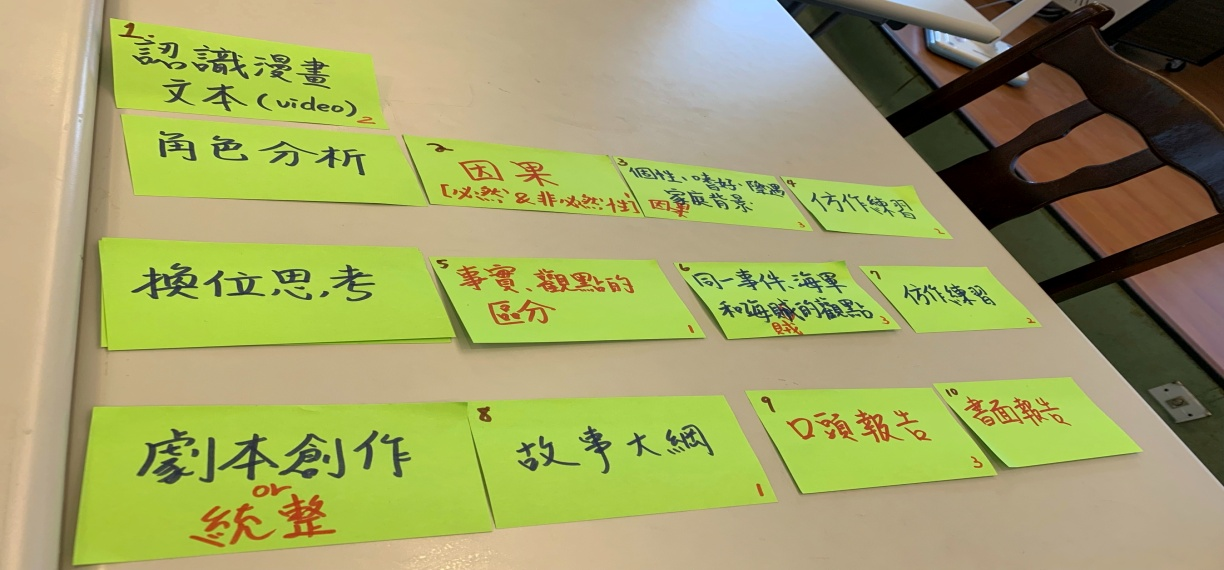 1.
認識漫畫
文本(video)
2
角色分析
2
因果
[必然&非必然性]
3
個性、嗜好、墜遇
家庭背景
因果
3
4
仿作練習
2
換位思考
5
事實、觀點的
區分
1
6
同一事件、海軍
和海賊的觀點
賊
3
7
仿作練習
2
劇本創作
or
統整
8
故事大綱
1
9
口頭報告
3
10
書面報告